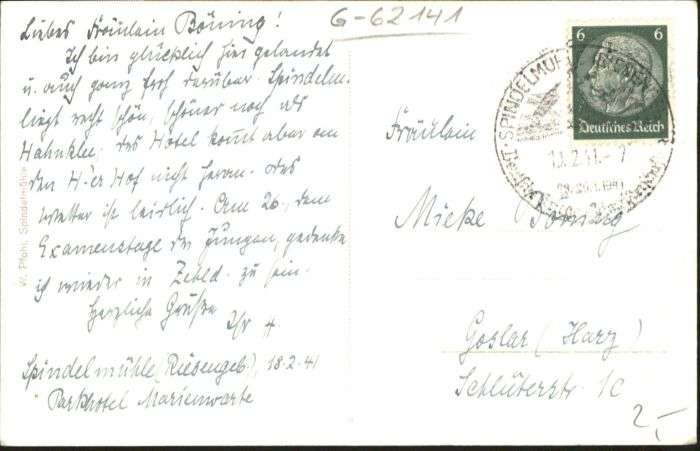 G-62141
Liebes Fräulein Böning!
Ich bin glücklich hier gelandet
u. auch ganz froh darüber. Spindelm.
liegt recht schön, schöner noch als
Hahnklee, das Hotel kommt aber an
den H'er Hof nicht heran. Das
Wetter ist leidlich. Am 26., dem
Examenstage der Jungen, gedenke
ich wieder in Zelld. zu sein.
Herzliche Grüße
Ihr H.
Spindelmühle (Riesengeb.), 18.2.41
Parkhotel Marienwarte
W. Pfohl, Spindelmühle
6 6
Deutsches Reich
SPINDELMÜHLE
Fräulein
Mieke Böning
Goslar (Harz)
Schlüterstr. 1c
2,-